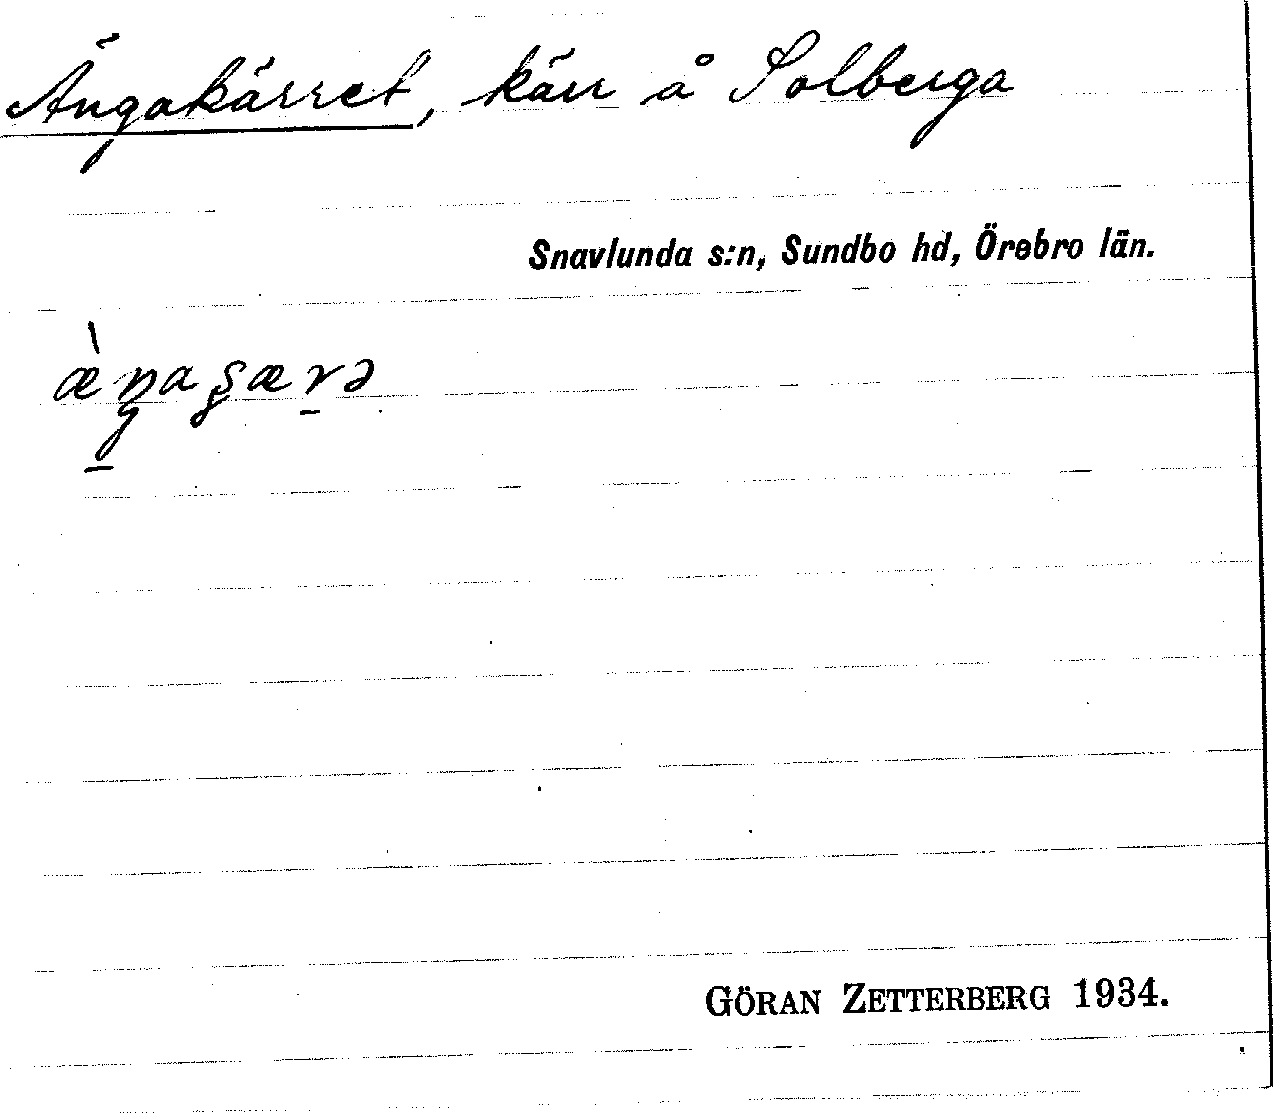 Ängakärret, kärr å Solberga
Snavlunda s:n, Sundbo hd, Örebro län.
GÖRAN ZETTERBERG 1934.